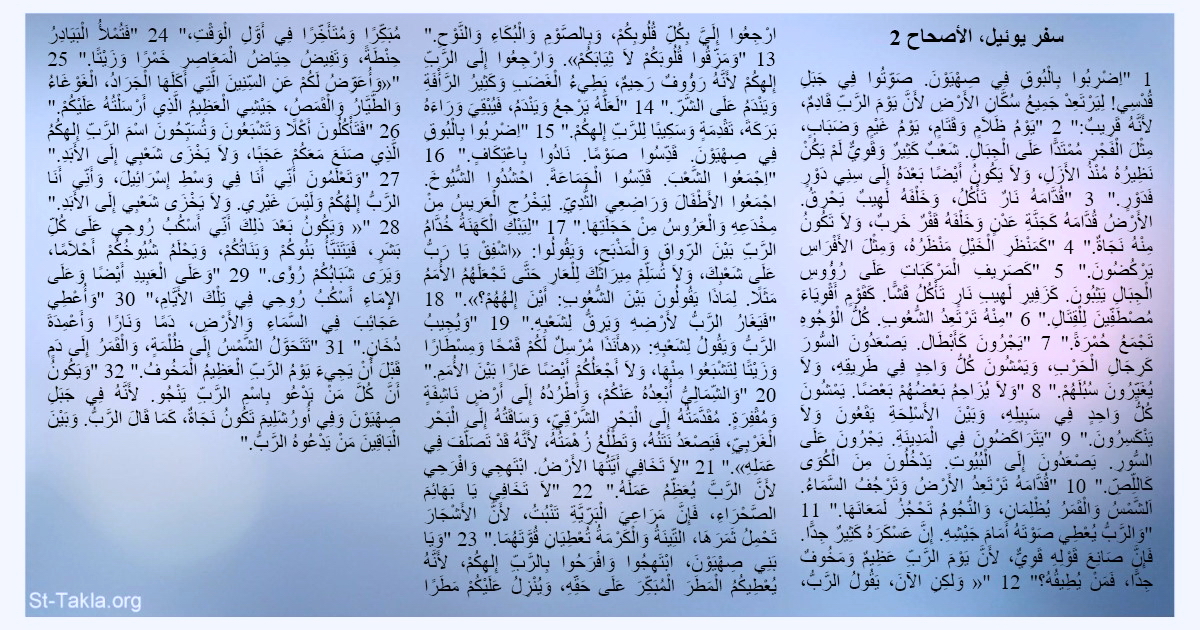 سفر يوئيل، الأصحاح 2
1 "اِضْرِبُوا بِالْبُوقِ فِي صِهْيَوْنَ. صَوِّتُوا فِي جَبَلِ
قُدْسِي! لِيَرْتَعِدْ جَمِيعُ سُكَّانِ الأَرْضِ لأَنَّ يَوْمَ الرَّبِّ قَادِمٌ،
لأَنَّهُ قَرِيبٌ:" 2 "يَوْمُ ظَلاَمٍ وَقَتَامٍ، يَوْمُ غَيْمٍ وَضَبَابٍ،
مِثْلَ الْفَجْرِ مُمْتَدًّا عَلَى الْجِبَالِ. شَعْبٌ كَثِيرٌ وَقَوِيٌّ لَمْ يَكُنْ
نَظِيرُهُ مُنْذُ الأَزَلِ، وَلاَ يَكُونُ أَيْضًا بَعْدَهُ إِلَى سِنِي دَوْرٍ
فَدَوْرٍ." 3 "قُدَّامَهُ نَارٌ تَأْكُلُ، وَخَلْفَهُ لَهِيبٌ يَحْرِقُ.
الأَرْضُ قُدَّامَهُ كَجَنَّةِ عَدْنٍ وَخَلْفَهُ قَفْرٌ خَرِبٌ، وَلاَ تَكُونُ
مِنْهُ نَجَاةٌ." 4 "كَمَنْظَرِ الْخَيْلِ مَنْظَرُهُ، وَمِثْلَ الأَفْرَاسِ
يَرْكُضُونَ." 5 "كَصَرِيفِ الْمَرْكَبَاتِ عَلَى رُؤُوسِ
الْجِبَالِ يَثِبُونَ. كَزَفِيرِ لَهِيبِ نَارٍ تَأْكُلُ قَشًّا. كَقَوْمٍ أَقْوِيَاءَ
مُصْطَفِّينَ لِلْقِتَالِ." 6 "مِنْهُ تَرْتَعِدُ الشُّعُوبُ. كُلُّ الْوُجُوهِ
تَجْمَعُ حُمْرَةً." 7 "يَجْرُونَ كَأَبْطَال. يَصْعَدُونَ السُّورَ
كَرِجَالِ الْحَرْبِ، وَيَمْشُونَ كُلُّ وَاحِدٍ فِي طَرِيقِهِ، وَلاَ
يُغَيِّرُونَ سُبُلَهُمْ." 8 "وَلاَ يُزَاحِمُ بَعْضُهُمْ بَعْضًا. يَمْشُونَ
كُلُّ وَاحِدٍ فِي سَبِيلِهِ، وَبَيْنَ الأَسْلِحَةِ يَقَعُونَ وَلاَ
يَنْكَسِرُونَ." 9 "يَتَرَاكَضُونَ فِي الْمَدِينَةِ. يَجْرُونَ عَلَى
السُّورِ. يَصْعَدُونَ إِلَى الْبُيُوتِ. يَدْخُلُونَ مِنَ الْكُوَى
كَاللِّصِّ." 10 "قُدَّامَهُ تَرْتَعِدُ الأَرْضُ وَتَرْجُفُ السَّمَاءُ.
اَلشَّمْسُ وَالْقَمَرُ يُظْلِمَانِ، وَالنُّجُومُ تَحْجُزُ لَمَعَانَهَا." 11
"وَالرَّبُّ يُعْطِي صَوْتَهُ أَمَامَ جَيْشِهِ. إِنَّ عَسْكَرَهُ كَثِيرٌ جِدًّا.
فَإِنَّ صَانِعَ قَوْلِهِ قَوِيٌّ، لأَنَّ يَوْمَ الرَّبِّ عَظِيمٌ وَمَخُوفٌ
جِدًّا، فَمَنْ يُطِيقُهُ؟" 12 "« وَلكِنِ الآنَ، يَقُولُ الرَّبُّ،
ارْجِعُوا إِلَيَّ بِكُلِّ قُلُوبِكُمْ، وَبِالصَّوْمِ وَالْبُكَاءِ وَالنَّوْحِ."
13 "وَمَزِّقُوا قُلُوبَكُمْ لاَ ثِيَابَكُمْ». وَارْجِعُوا إِلَى الرَّبِّ
إِلهِكُمْ لأَنَّهُ رَؤُوفٌ رَحِيمٌ، بَطِيءُ الْغَضَبِ وَكَثِيرُ الرَّأْفَةِ
وَيَنْدَمُ عَلَى الشَّرِّ." 14 "لَعَلَّهُ يَرْجعُ وَيَنْدَمُ، فَيُبْقِيَ وَرَاءَهُ
بَرَكَةَ، تَقْدِمَةٍ وَسَكِيبًا لِلرَّبِّ إِلهِكُمْ." 15 "اِضْرِبُوا بِالْبُوقِ
فِي صِهْيَوْنَ. قَدِّسُوا صَوْمًا. نَادُوا بِاعْتِكَافٍ." 16
"اِجْمَعُوا الشَّعْبَ. قَدِّسُوا الْجَمَاعَةَ. احْشُدُوا الشُّيُوخَ.
اجْمَعُوا الأَطْفَالَ وَرَاضِعِي الثُّدِيِّ. لِيَخْرُجِ الْعَرِيسُ مِنْ
مِخْدَعِهِ وَالْعَرُوسُ مِنْ حَجَلَتِهَا." 17 "لِيَبْكِ الْكَهَنَةُ خُدَّامُ
الرَّبِّ بَيْنَ الرِّوَاقِ وَالْمَذْبَحِ، وَيَقُولُوا: «اشْفِقْ يَا رَبُّ
عَلَى شَعْبِكَ، وَلاَ تُسَلِّمْ مِيرَاثَكَ لِلْعَارِ حَتَّى تَجْعَلَهُمُ الأُمَمُ
مَثَلًا. لِمَاذَا يَقُولُونَ بَيْنَ الشُّعُوبِ: أَيْنَ إِلهُهُمْ؟»." 18
"فَيَغَارُ الرَّبُّ لأَرْضِهِ وَيَرِقُّ لِشَعْبِهِ." 19 "وَيُجِيبُ
الرَّبُّ وَيَقُولُ لِشَعْبِهِ: «هأَنَذَا مُرْسِلٌ لَكُمْ قَمْحًا وَمِسْطَارًا
وَزَيْتًا لِتَشْبَعُوا مِنْهَا، وَلاَ أَجْعَلُكُمْ أَيْضًا عَارًا بَيْنَ الأُمَمِ."
20 "وَالشِّمَالِيُّ أُبْعِدُهُ عَنْكُمْ، وَأَطْرُدُهُ إِلَى أَرْضٍ نَاشِفَةٍ
وَمُقْفِرَةٍ. مُقَدَّمَتُهُ إِلَى الْبَحْرِ الشَّرْقِيِّ، وَسَاقَتُهُ إِلَى الْبَحْرِ
الْغَرْبِيِّ، فَيَصْعَدُ نَتَنُهُ، وَتَطْلُعُ زُهْمَتُهُ، لأَنَّهُ قَدْ تَصَلَّفَ فِي
عَمَلِهِ»." 21 "لاَ تَخَافِي أَيَّتُهَا الأَرْضُ. ابْتَهِجِي وَافْرَحِي
لأَنَّ الرَّبَّ يُعَظِّمُ عَمَلَهُ." 22 "لاَ تَخَافِي يَا بَهَائِمَ
الصَّحْرَاءِ، فَإِنَّ مَرَاعِيَ الْبَرِّيَّةِ تَنْبُتُ، لأَنَّ الأَشْجَارَ
تَحْمِلُ ثَمَرَهَا، التِّينَةُ وَالْكَرْمَةُ تُعْطِيَانِ قُوَّتَهُمَا." 23 "وَيَا
بَنِي صِهْيَوْنَ، ابْتَهِجُوا وَافْرَحُوا بِالرَّبِّ إِلهِكُمْ، لأَنَّهُ
يُعْطِيكُمُ الْمَطَرَ الْمُبَكِّرَ عَلَى حَقِّهِ، وَيُنْزِلُ عَلَيْكُمْ مَطَرًا
مُبَكِّرًا وَمُتَأَخِّرًا فِي أَوَّلِ الْوَقْتِ،" 24 "فَتُمْلأُ الْبَيَادِرُ
حِنْطَةً، وَتَفِيضُ حِيَاضُ الْمَعَاصِرِ خَمْرًا وَزَيْتًا." 25
"«وَأُعَوِّضُ لَكُمْ عَنِ السِّنِينَ الَّتِي أَكَلَهَا الْجَرَادُ، الْغَوْغَاءُ
وَالطَّيَّارُ وَالْقَمَصُ، جَيْشِي الْعَظِيمُ الَّذِي أَرْسَلْتُهُ عَلَيْكُمْ."
26 "فَتَأْكُلُونَ أَكْلًا وَتَشْبَعُونَ وَتُسَبِّحُونَ اسْمَ الرَّبِّ إِلهِكُمُ
الَّذِي صَنَعَ مَعَكُمْ عَجَبًا، وَلاَ يَخْزَى شَعْبِي إِلَى الأَبَدِ."
27 "وَتَعْلَمُونَ أَنِّي أَنَا فِي وَسْطِ إِسْرَائِيلَ، وَأَنِّي أَنَا
الرَّبُّ إِلهُكُمْ وَلَيْسَ غَيْرِي. وَلاَ يَخْزَى شَعْبِي إِلَى الأَبَدِ."
28 "« وَيَكُونُ بَعْدَ ذلِكَ أَنِّي أَسْكُبُ رُوحِي عَلَى كُلِّ
بَشَرٍ، فَيَتَنَبَّأُ بَنُوكُمْ وَبَنَاتُكُمْ، وَيَحْلَمُ شُيُوخُكُمْ أَحْلاَمًا،
وَيَرَى شَبَابُكُمْ رُؤًى." 29 "وَعَلَى الْعَبِيدِ أَيْضًا وَعَلَى
الإِمَاءِ أَسْكُبُ رُوحِي فِي تِلْكَ الأَيَّامِ،" 30 "وَأُعْطِي
عَجَائِبَ فِي السَّمَاءِ وَالأَرْضِ، دَمًا وَنَارًا وَأَعْمِدَةَ
دُخَانٍ." 31 "تَتَحَوَّلُ الشَّمْسُ إِلَى ظُلْمَةٍ، وَالْقَمَرُ إِلَى دَمٍ
قَبْلَ أَنْ يَجِيءَ يَوْمُ الرَّبِّ الْعَظِيمُ الْمَخُوفُ." 32 "وَيَكُونُ
أَنَّ كُلَّ مَنْ يَدْعُو بِاسْمِ الرَّبِّ يَنْجُو. لأَنَّهُ فِي جَبَلِ
صِهْيَوْنَ وَفِي أُورُشَلِيمَ تَكُونُ نَجَاةٌ، كَمَا قَالَ الرَّبُّ. وَبَيْنَ
الْبَاقِينَ مَنْ يَدْعُوهُ الرَّبُّ."
St-Takla.org